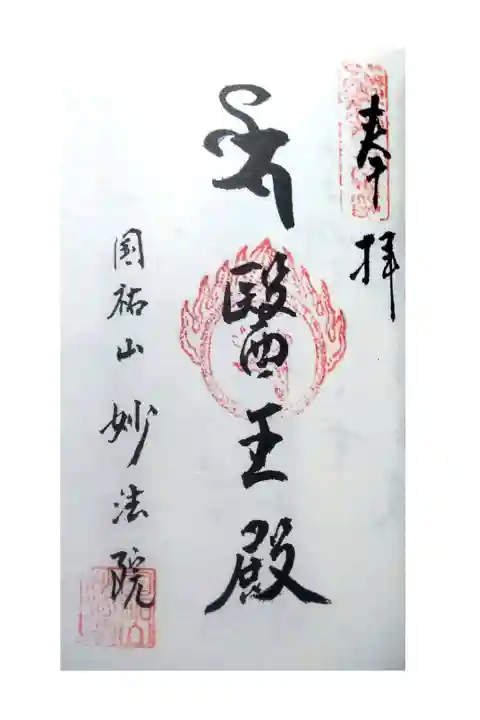 奉拝
醫王殿
国祐山妙法院